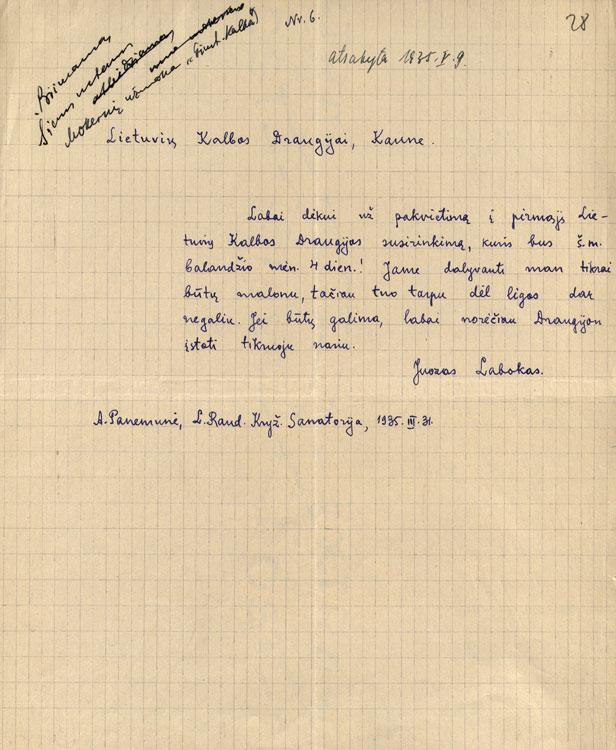 Nr. 6.
28
atsakyta 1935.V.9.
Priimamas
Šiems metams
Mokesnių užmoka „Gimt. Kalbą"
Lietuvių Kalbos Draugijai, Kaune.
Labai dėkui už pakvietimą į pirmąjį Lie-
tuvių Kalbos Draugijos susirinkimą, kuris bus š.m.
balandžio mėn. 4 dien.! Jame dalyvauti man tikrai
būtų malonu, tačiau tuo tarpu dėl ligos dar
negaliu. Jei būtų galima, labai norėčiau Draugijon
įstoti tikruoju nariu.
Juozas Labokas.
A. Panemunė, L. Raud. Kryž. Sanatorija, 1935.III.31.